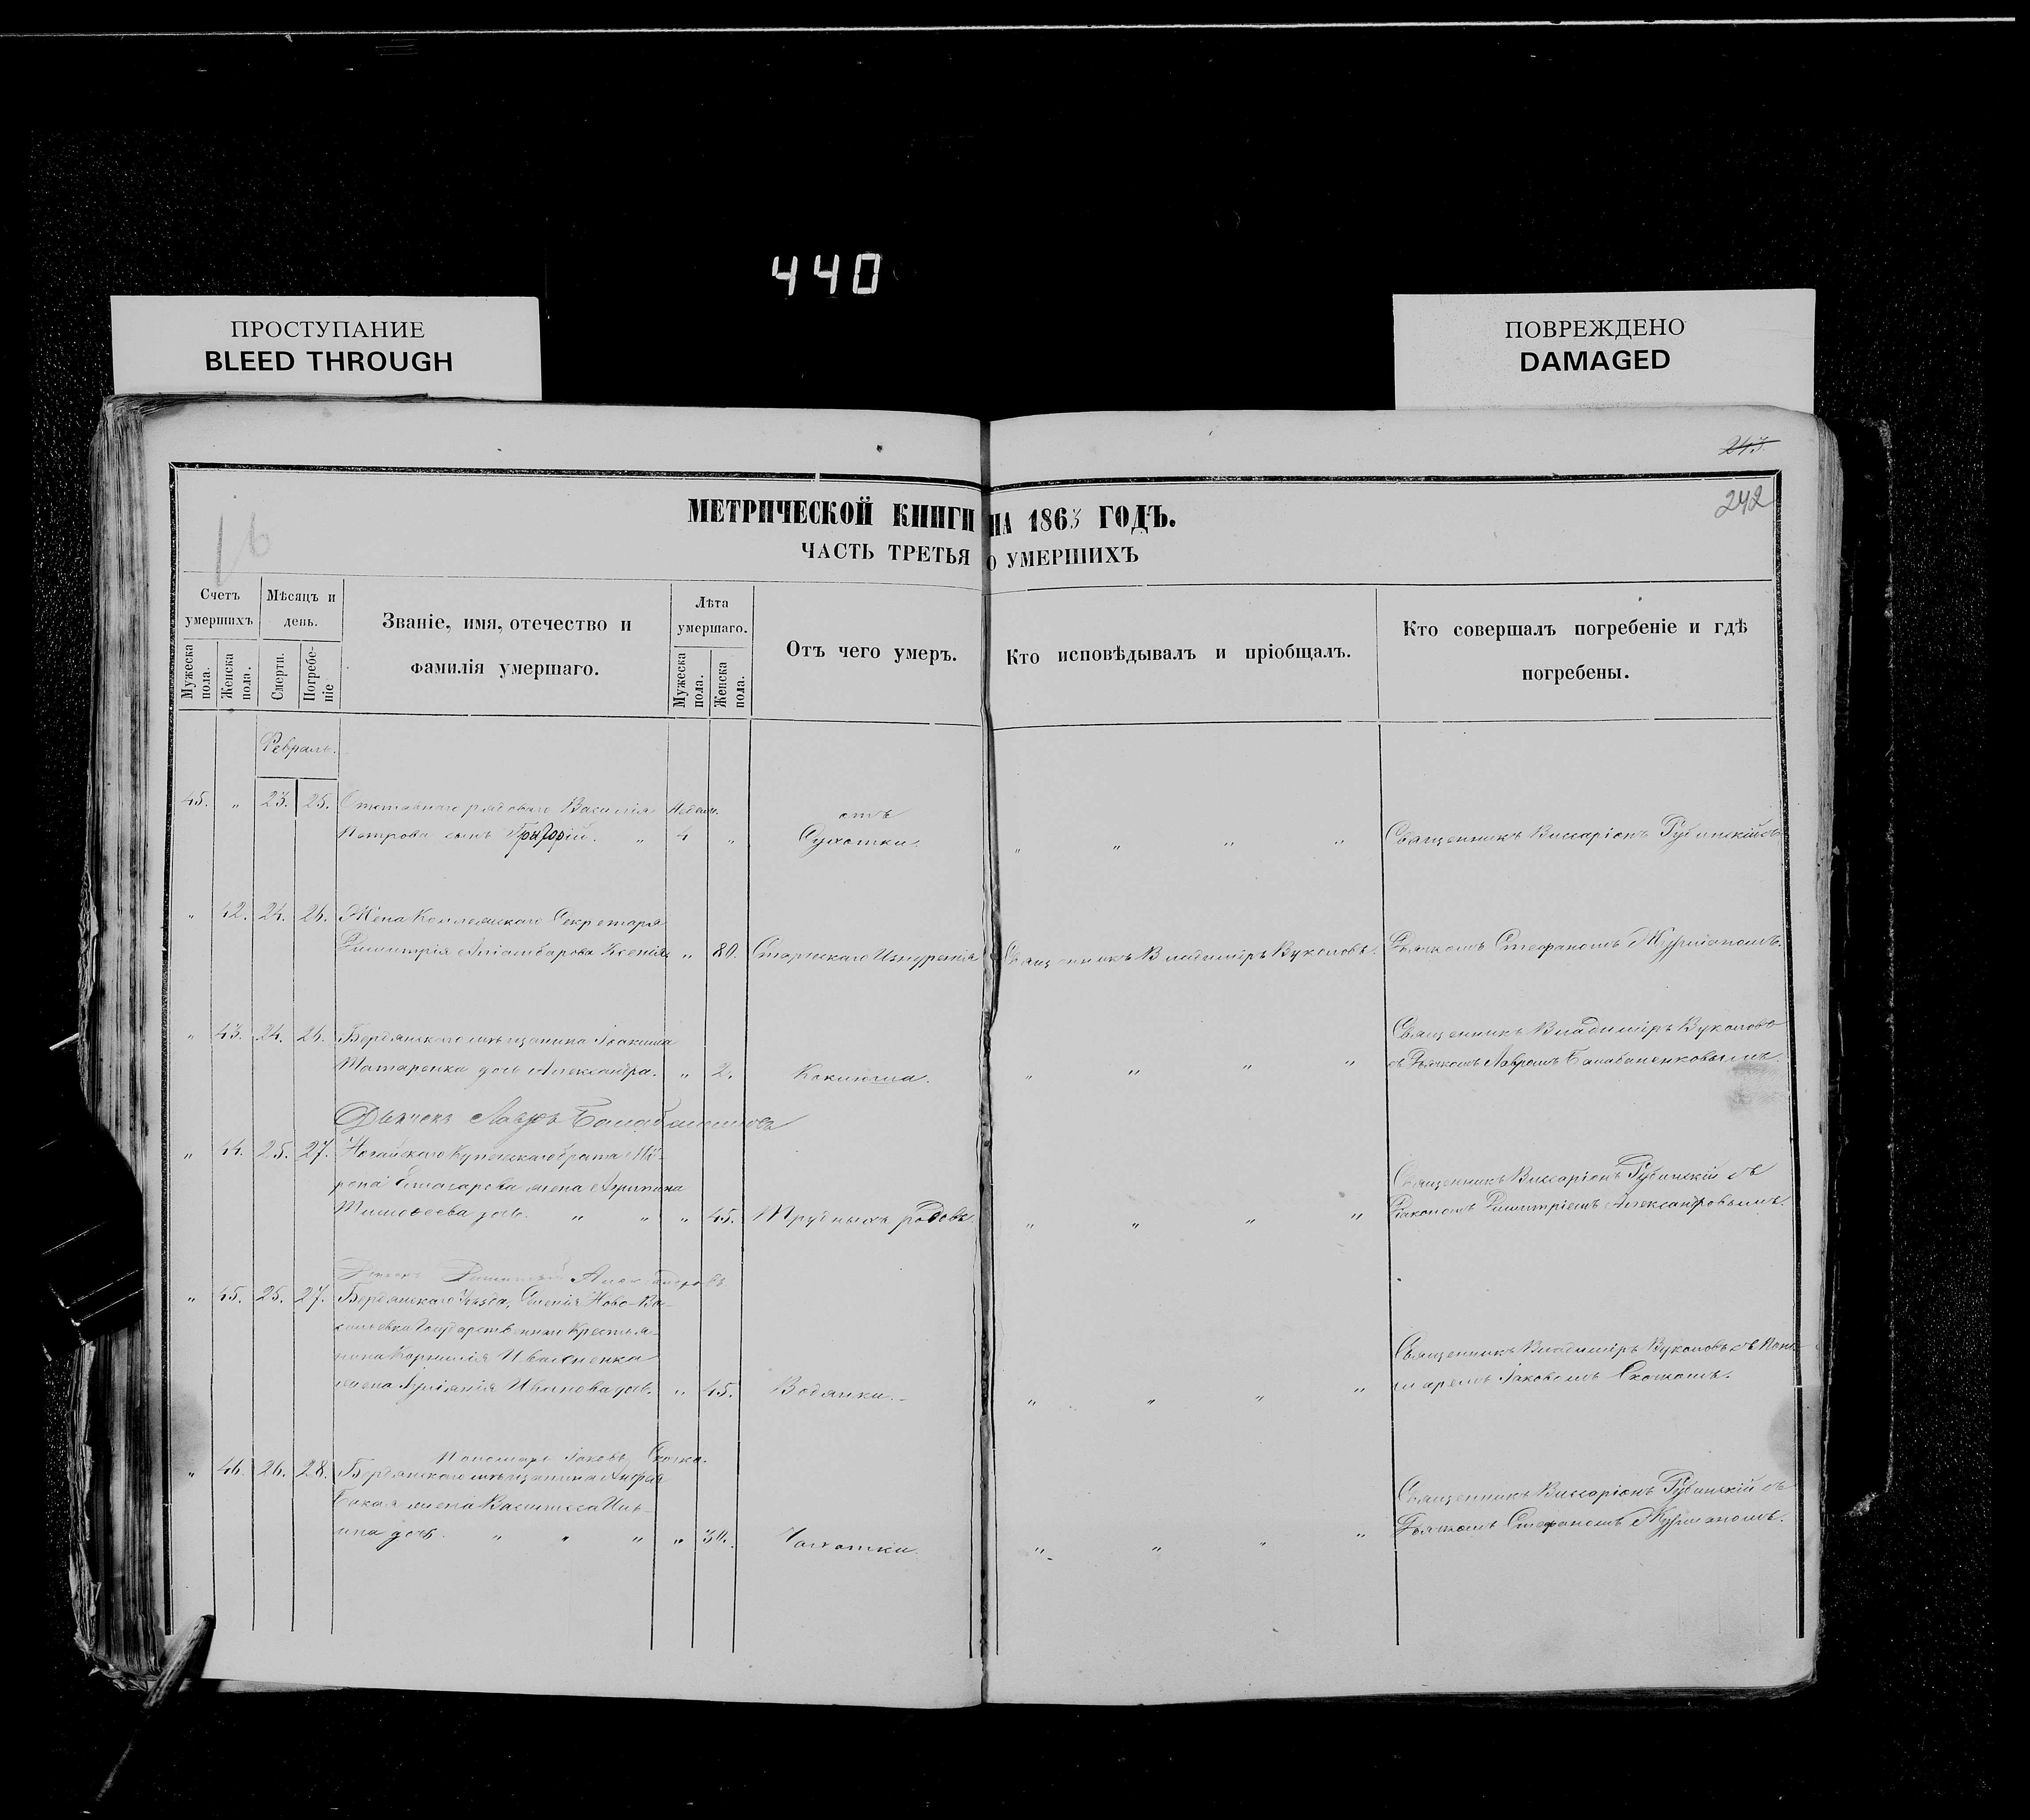 440
ПРОСТУПАНИЕ
BLEED THROUGH
ПОВРЕЖДЕНО
DAMAGED
243
242
16
МЕТРИЧЕСКОЙ КНИГИ НА 1863 ГОДЪ.
ЧАСТЬ ТРЕТЬЯ О УМЕРШИХЪ
Счетъ умершихъ
Мужеска пола.
Женска пола.
Мѣсяцъ и день.
Смерти.
Погребеніе
Званіе, имя, отечество и фамилія умершаго.
Лѣта умершаго.
Мужеска пола.
Женска пола.
Отъ чего умеръ.
Кто исповѣдывалъ и пріобщалъ.
Кто совершалъ погребеніе и гдѣ погребены.
Февраль.
45. „ 23. 25. Отставнаго рядоваго Василія Недѣл. отъ
Петрова сынъ Григорій. „ 4 „ Сухотки. „ „ „ „ Священникъ Виссаріонъ Губинскій съ
„ 42. 24. 26. Жена Коллежскаго Секретаря
Димитрія Ксенія „ 80. Старческаго Изнуренія Священникъ Владиміръ Вуколовъ. Дьячкомъ Стефаномъ Журманомъ.
„ 43. 24. 26. Бердянскаго мѣщанина Іоакима Священникъ Владиміръ Вуколовъ
Татаренка дочь Александра. „ 2. Коклюша. „ „ „ „ съ Дьячкомъ Лавромъ Балабаненковымъ.
Дьячекъ Лавръ Балабаненковъ
„ 44. 25. 27. Ногайскаго Купеческаго брата Ми-
рона жена Агрипина Священникъ Виссаріонъ Губинскій съ
Тимофеева дочь. „ „ „ 45. Трудныхъ родовъ. „ „ „ „ Діакономъ Димитріемъ Александровымъ.
Димитрій Александровъ
„ 45. 25. 27. Бердянскаго Уѣзда, Селенія Ново-Ва-
сильевка Государственнаго Крестья-
нина Корнилія Иваненка Священникъ Владиміръ Вуколовъ съ Поно-
жена Іуліанія Иванова дочь. „ 45. Водянки. „ „ „ „ маремъ Іаковомъ Скокомъ.
Пономарь Іаковъ Скока.
„ 46. 26. 28. Бердянскаго мѣщанина Андрея
жена Василиса Иль- Священникъ Виссаріонъ Губинскій съ
ина дочь. „ „ „ „ 30. Чахотки. „ „ „ „ Дьячкомъ Стефаномъ Журманомъ.